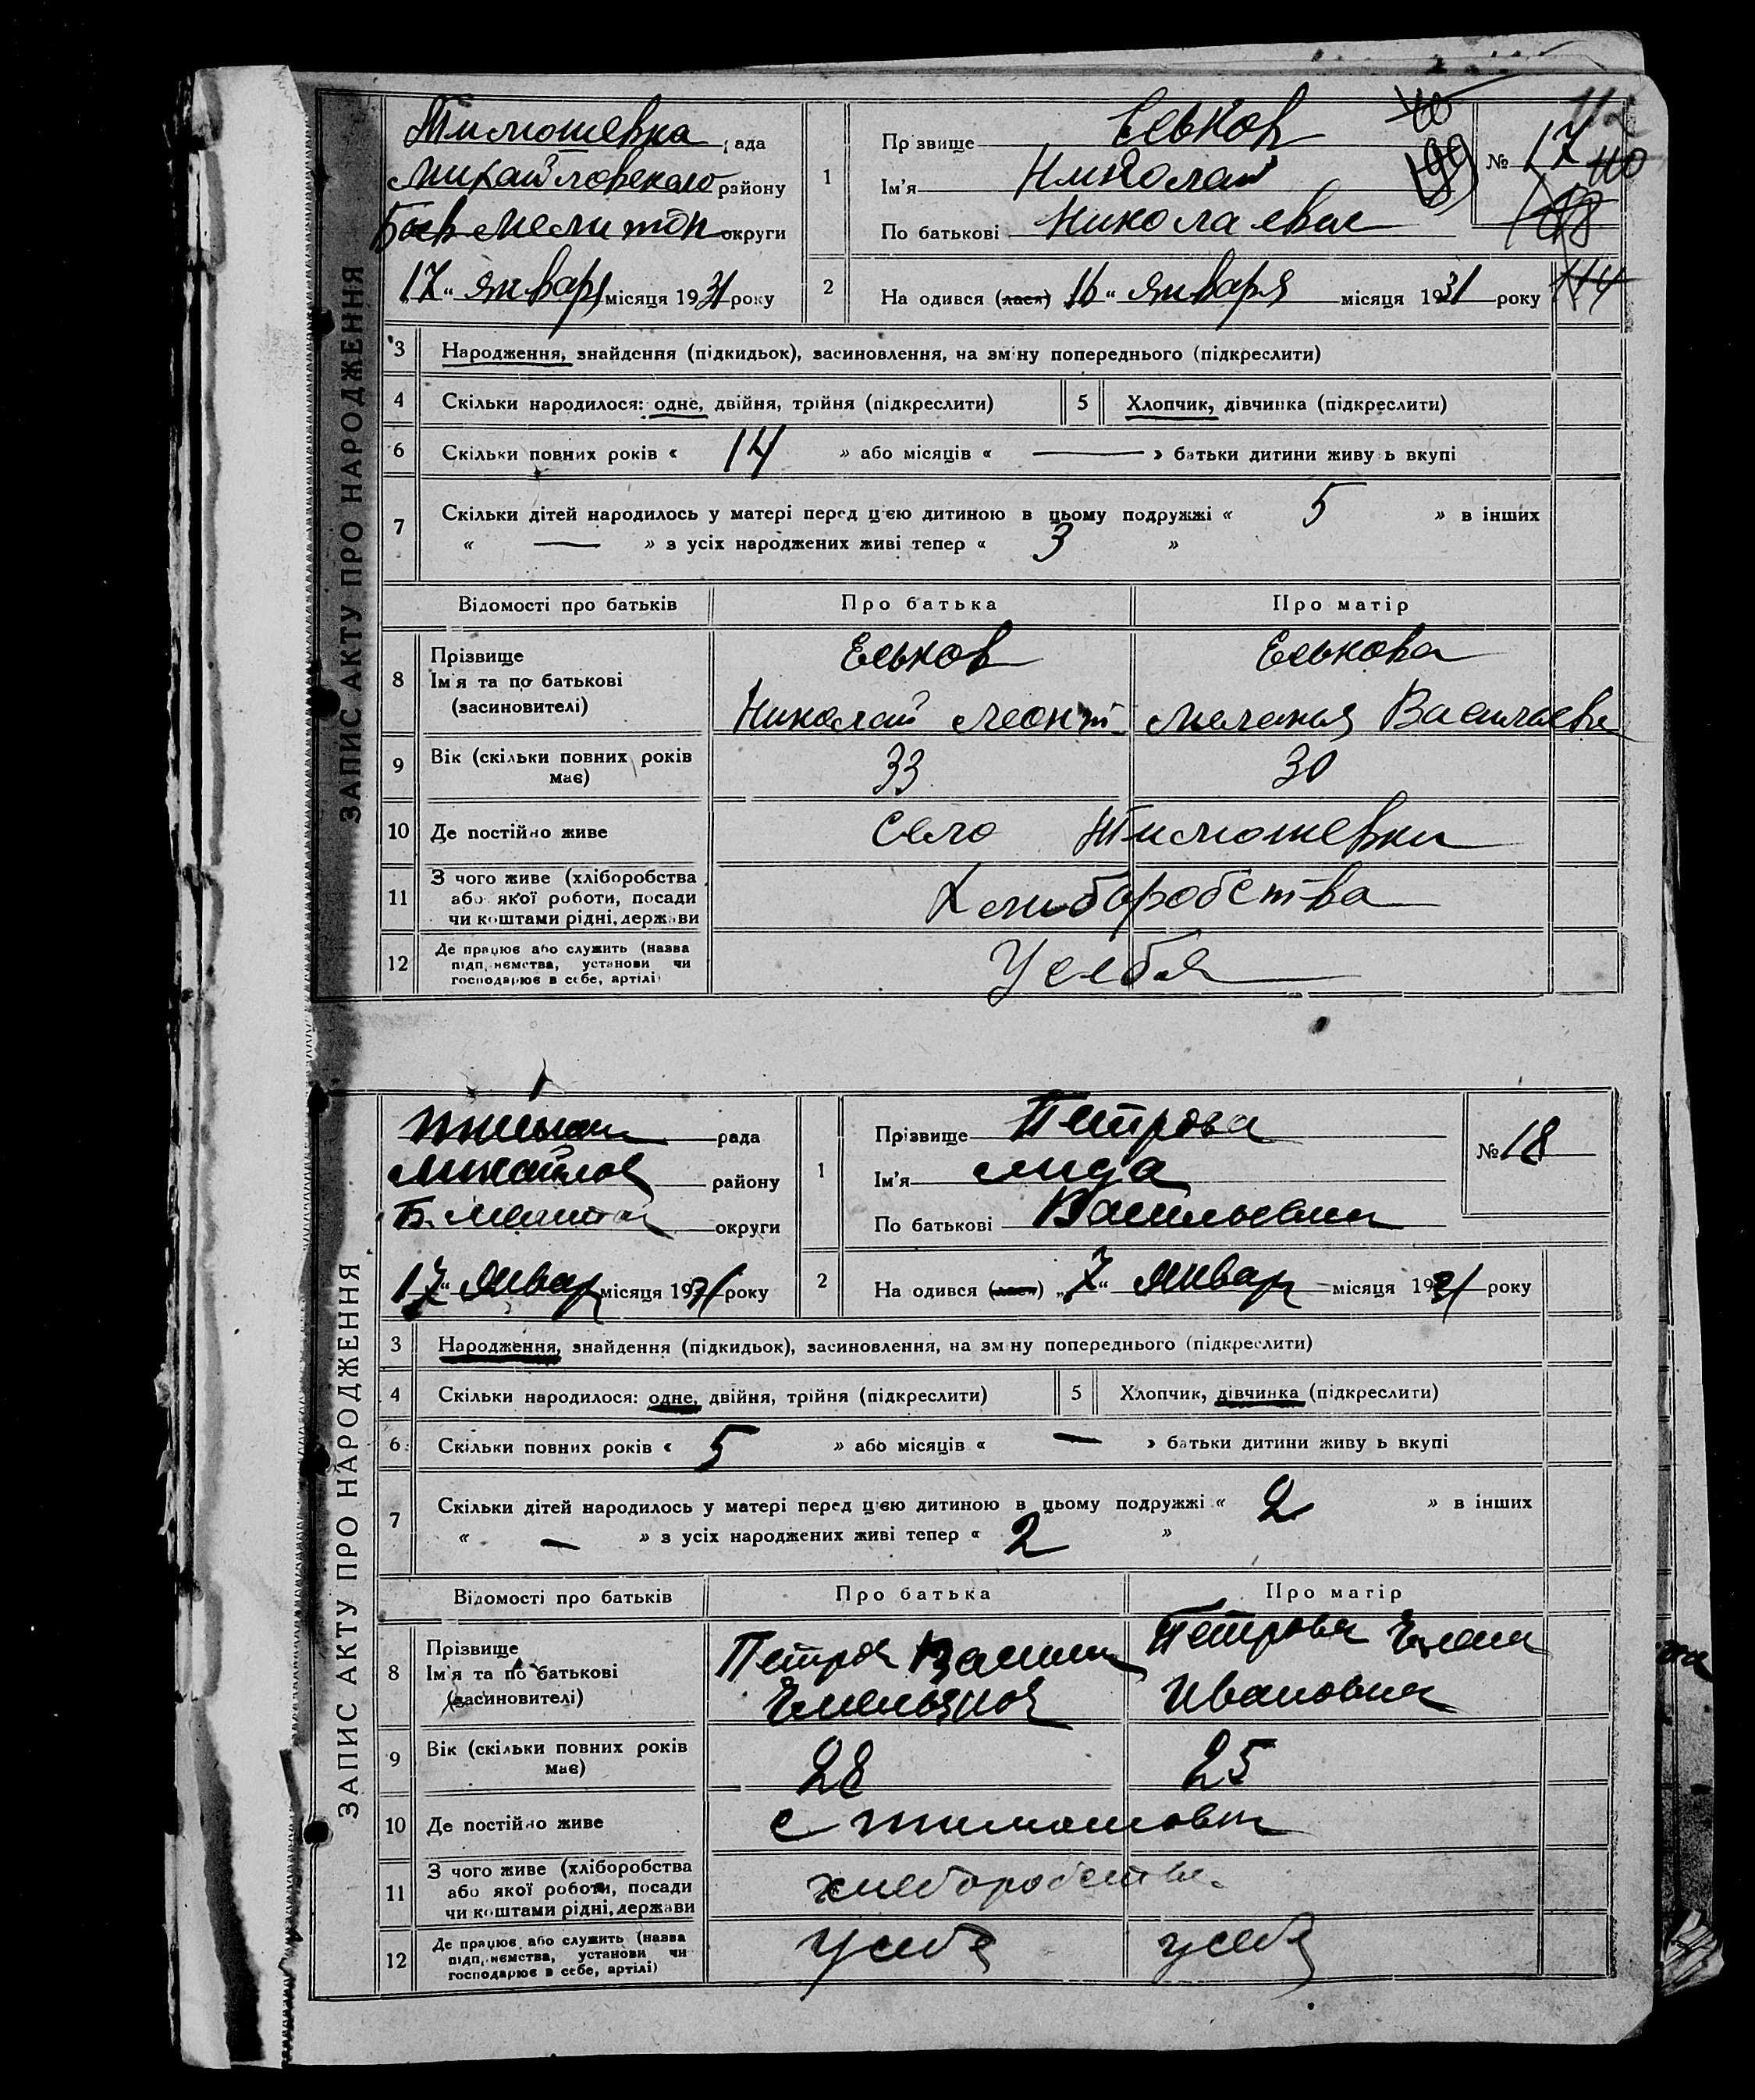 ЗАПИС АКТУ ПРО НАРОДЖЕННЯ
Тимошевка рада
Михайловского району
Мелитоп округи
17 " января місяця 1931 року
1 Прізвище Еськов
Ім'я Николай
По батькові Николаевич
№ 17
2 На одився (лася) 16 " января місяця 1931 року 114
3 Народження, знайдення (підкидьок), засиновлення, на зміну попереднього (підкреслити)
4 Скільки народилося: одне, двійня, трійня (підкреслити) 5 Хлопчик, дівчинка (підкреслити)
6 Скільки повних років « 14 » або місяців « — » батьки дитини живу ь вкупі
7 Скільки дітей народилось у матері перед цією дитиною в цьому подружжі « 5 » в інших
« — » з усіх народжених живі тепер « 3 »
Відомості про батьків Про батька Про матір
8 Прізвище Еськов Еськова
Ім'я та по батькові
(засиновителі) Николай Леонт Меланья Васильевн
9 Вік (скільки повних років має) 33 30
10 Де постійно живе Село Тимошевки
11 З чого живе (хліборобства
або якої роботи, посади
чи коштами рідні, держави Хлиборобства
12 Де працює або служить (назва
підп, иємства, установи чи
господарює в себе, артілі) У себя
ЗАПИС АКТУ ПРО НАРОДЖЕННЯ
рада
Михайлов району
Б. округи
17 " Январ місяця 1931 року
1 Прізвище Петрова
Ім'я Лида
По батькові Васильевна
№ 18
2 На одився (лася) „ 7 " Январ місяця 1931 року
3 Народження, знайдення (підкидьок), засиновлення, на зм ну попереднього (підкреслити)
4 Скільки народилося: одне, двійня, трійня (підкреслити) 5 Хлопчик, дівчинка (підкреслити)
6 Скільки повних років « 5 » або місяців « — » батьки дитини живу ь вкупі
7 Скільки дітей народилось у матері перед цією дитиною в цьому подружжі « 2 » в інших
« — » з усіх народжених живі тепер « 2 »
Відомості про батьків Про батька Про матір
8 Прізвище
Ім'я та по батькові Петров Василий Петрова Елена
(засиновителі) Емельянов Ивановна
9 Вік (скільки повних років має) 28 25
10 Де постійно живе с Тимошовки
11 З чого живе (хліборобства
або якої роботи, посади
чи коштами рідні, держави хлеборобства
12 Де працює або служить (назва
підп, иємства, установи чи
господарює в себе, артілі) у себя у себя